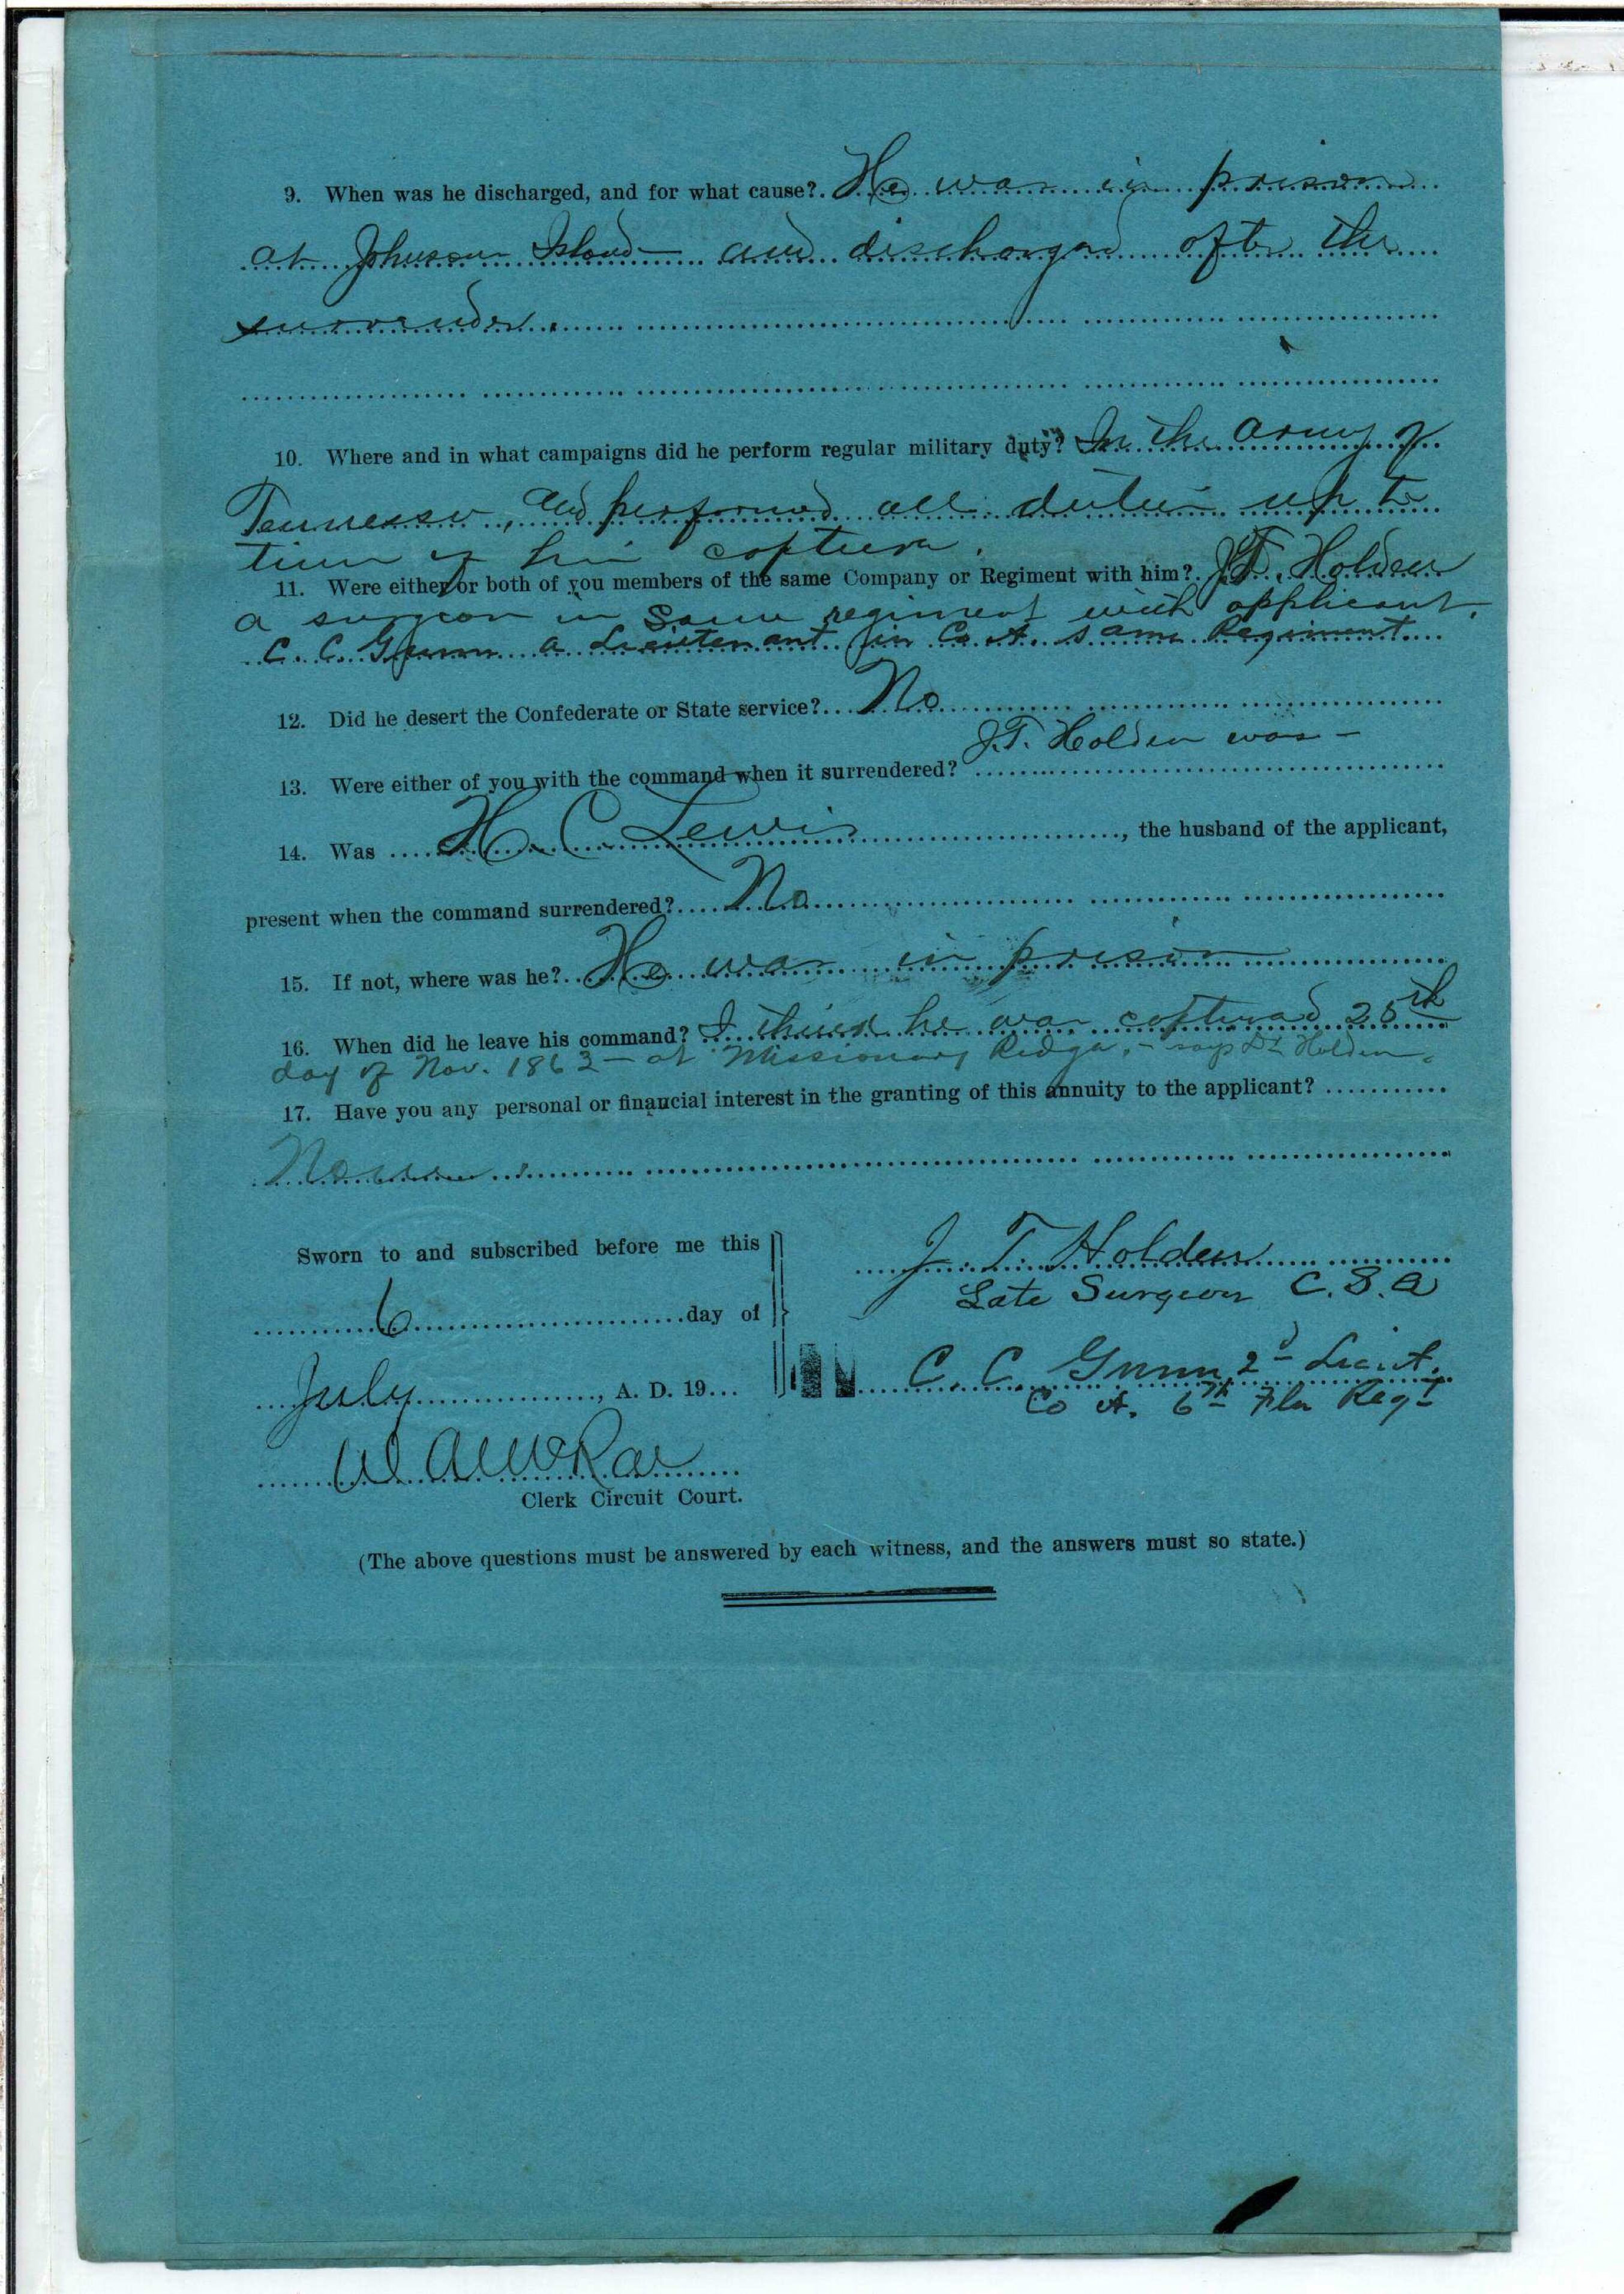 9. When was he discharged, and for what cause? He was in prison
at Johnson Island and discharged after the
surrender.
10. Where and in what campaigns did he perform regular military duty? In the army of
Tennessee, and performed all duties up to
time of his capture.
11. Were either or both of you members of the same Company or Regiment with him? J.T. Holden
a surgeon in same regiment with applicant.
C. C. Gunn a Lieutenant in Co A. same Regiment.
12. Did he desert the Confederate or State service? No
J.T. Holden was -
13. Were either of you with the command when it surrendered?
14. Was H. C. Lewis, the husband of the applicant,
present when the command surrendered? No
15. If not, where was he? He was in prison
16. When did he leave his command? I think he was captured 25th
day of Nov. 1863 - at Missionary Ridge, - says Dr Holden.
17. Have you any personal or financial interest in the granting of this annuity to the applicant?
None
Sworn to and subscribed before me this
6 day of
July, A. D. 19
J. T. Holden
Late Surgeon C.S.A
C. C. Gunn 2d Lieut.
Co A. 6th Fla Regt
Clerk Circuit Court.
(The above questions must be answered by each witness, and the answers must so state.)